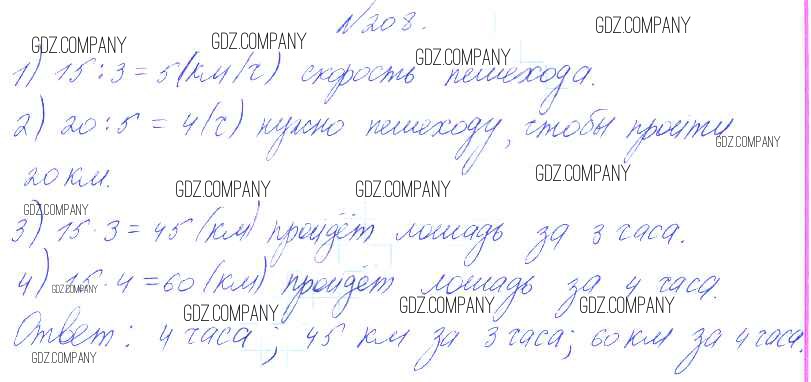 №208.
1) 15:3=5(км/ч) скорость пешехода.
2) 20:5=4(ч) нужно пешеходу, чтобы пройти
20 км.
3) 15·3=45(км) пройдёт лошадь за 3 часа.
4) 15·4=60(км) пройдёт лошадь за 4 часа.
Ответ: 4 часа; 45 км за 3 часа; 60 км за 4 часа.
GDZ.COMPANY
GDZ.COMPANY
GDZ.COMPANY
GDZ.COMPANY
GDZ.COMPANY
GDZ.COMPANY
GDZ.COMPANY
GDZ.COMPANY
GDZ.COMPANY
GDZ.COMPANY
GDZ.COMPANY
GDZ.COMPANY
GDZ.COMPANY
GDZ.COMPANY